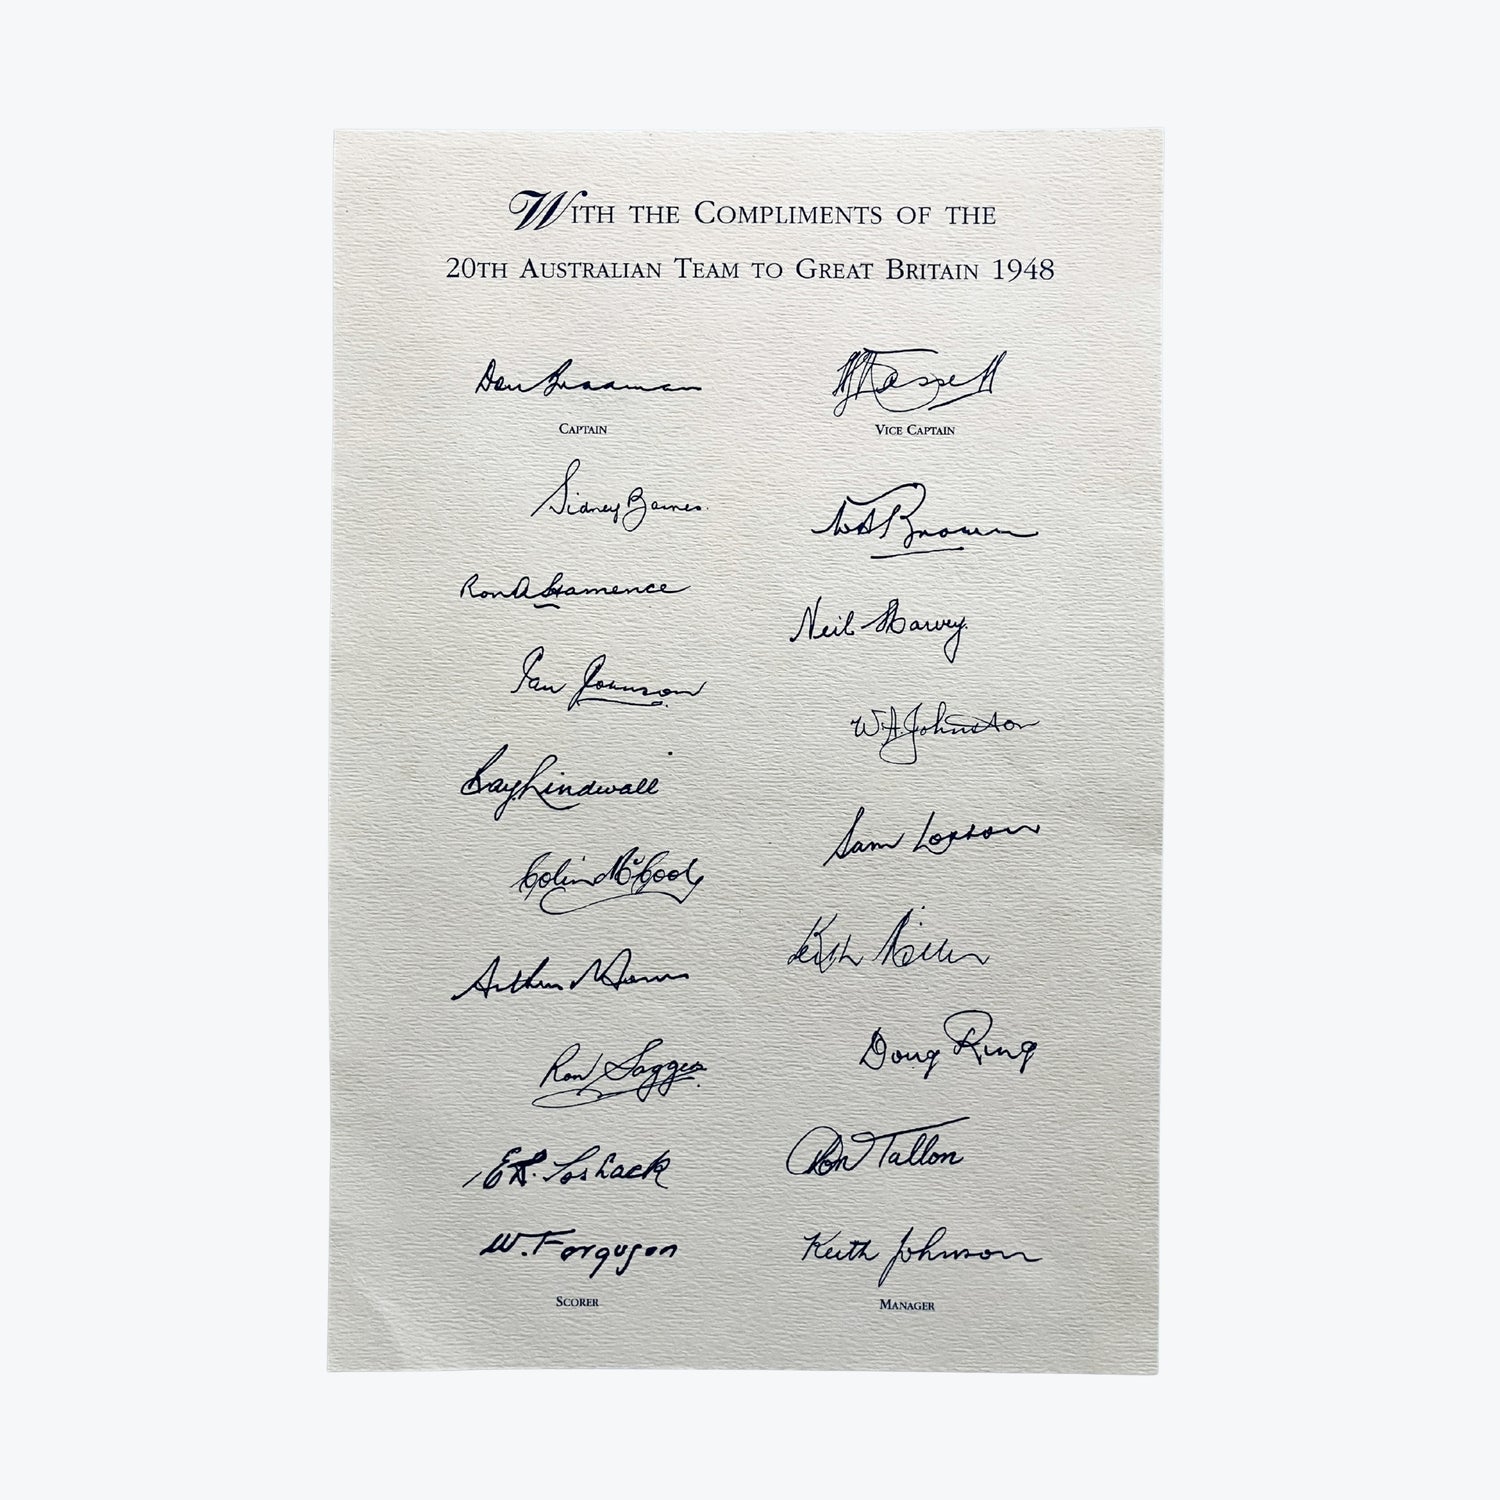 With the Compliments of the
20th Australian Team to Great Britain 1948
Don Bradman
Captain
Sidney Barnes.
Ron A Hamence
Ian Johnson
Ray Lindwall
Colin McCool
Arthur Morris
Ron Saggers
E R. Toshack
W. Ferguson
Scorer
A L Hassett
Vice Captain
W A Brown
Neil Harvey.
W A. Johnston
Sam Loxton
Keith Miller
Doug Ring
Don Tallon
Keith Johnson
Manager